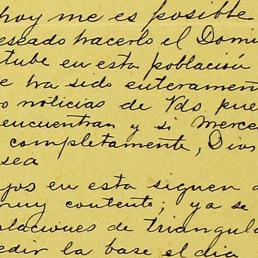 hoy me es posible
eseado hacerlo el Domi
tube en esta población
e ha sido enteramen
o noticias de Vds. pue
encuentran y si merce
completamente, Dios
sea
jos en esta siguen
muy contento; ya se
laciones de triangula
edir la base el dia